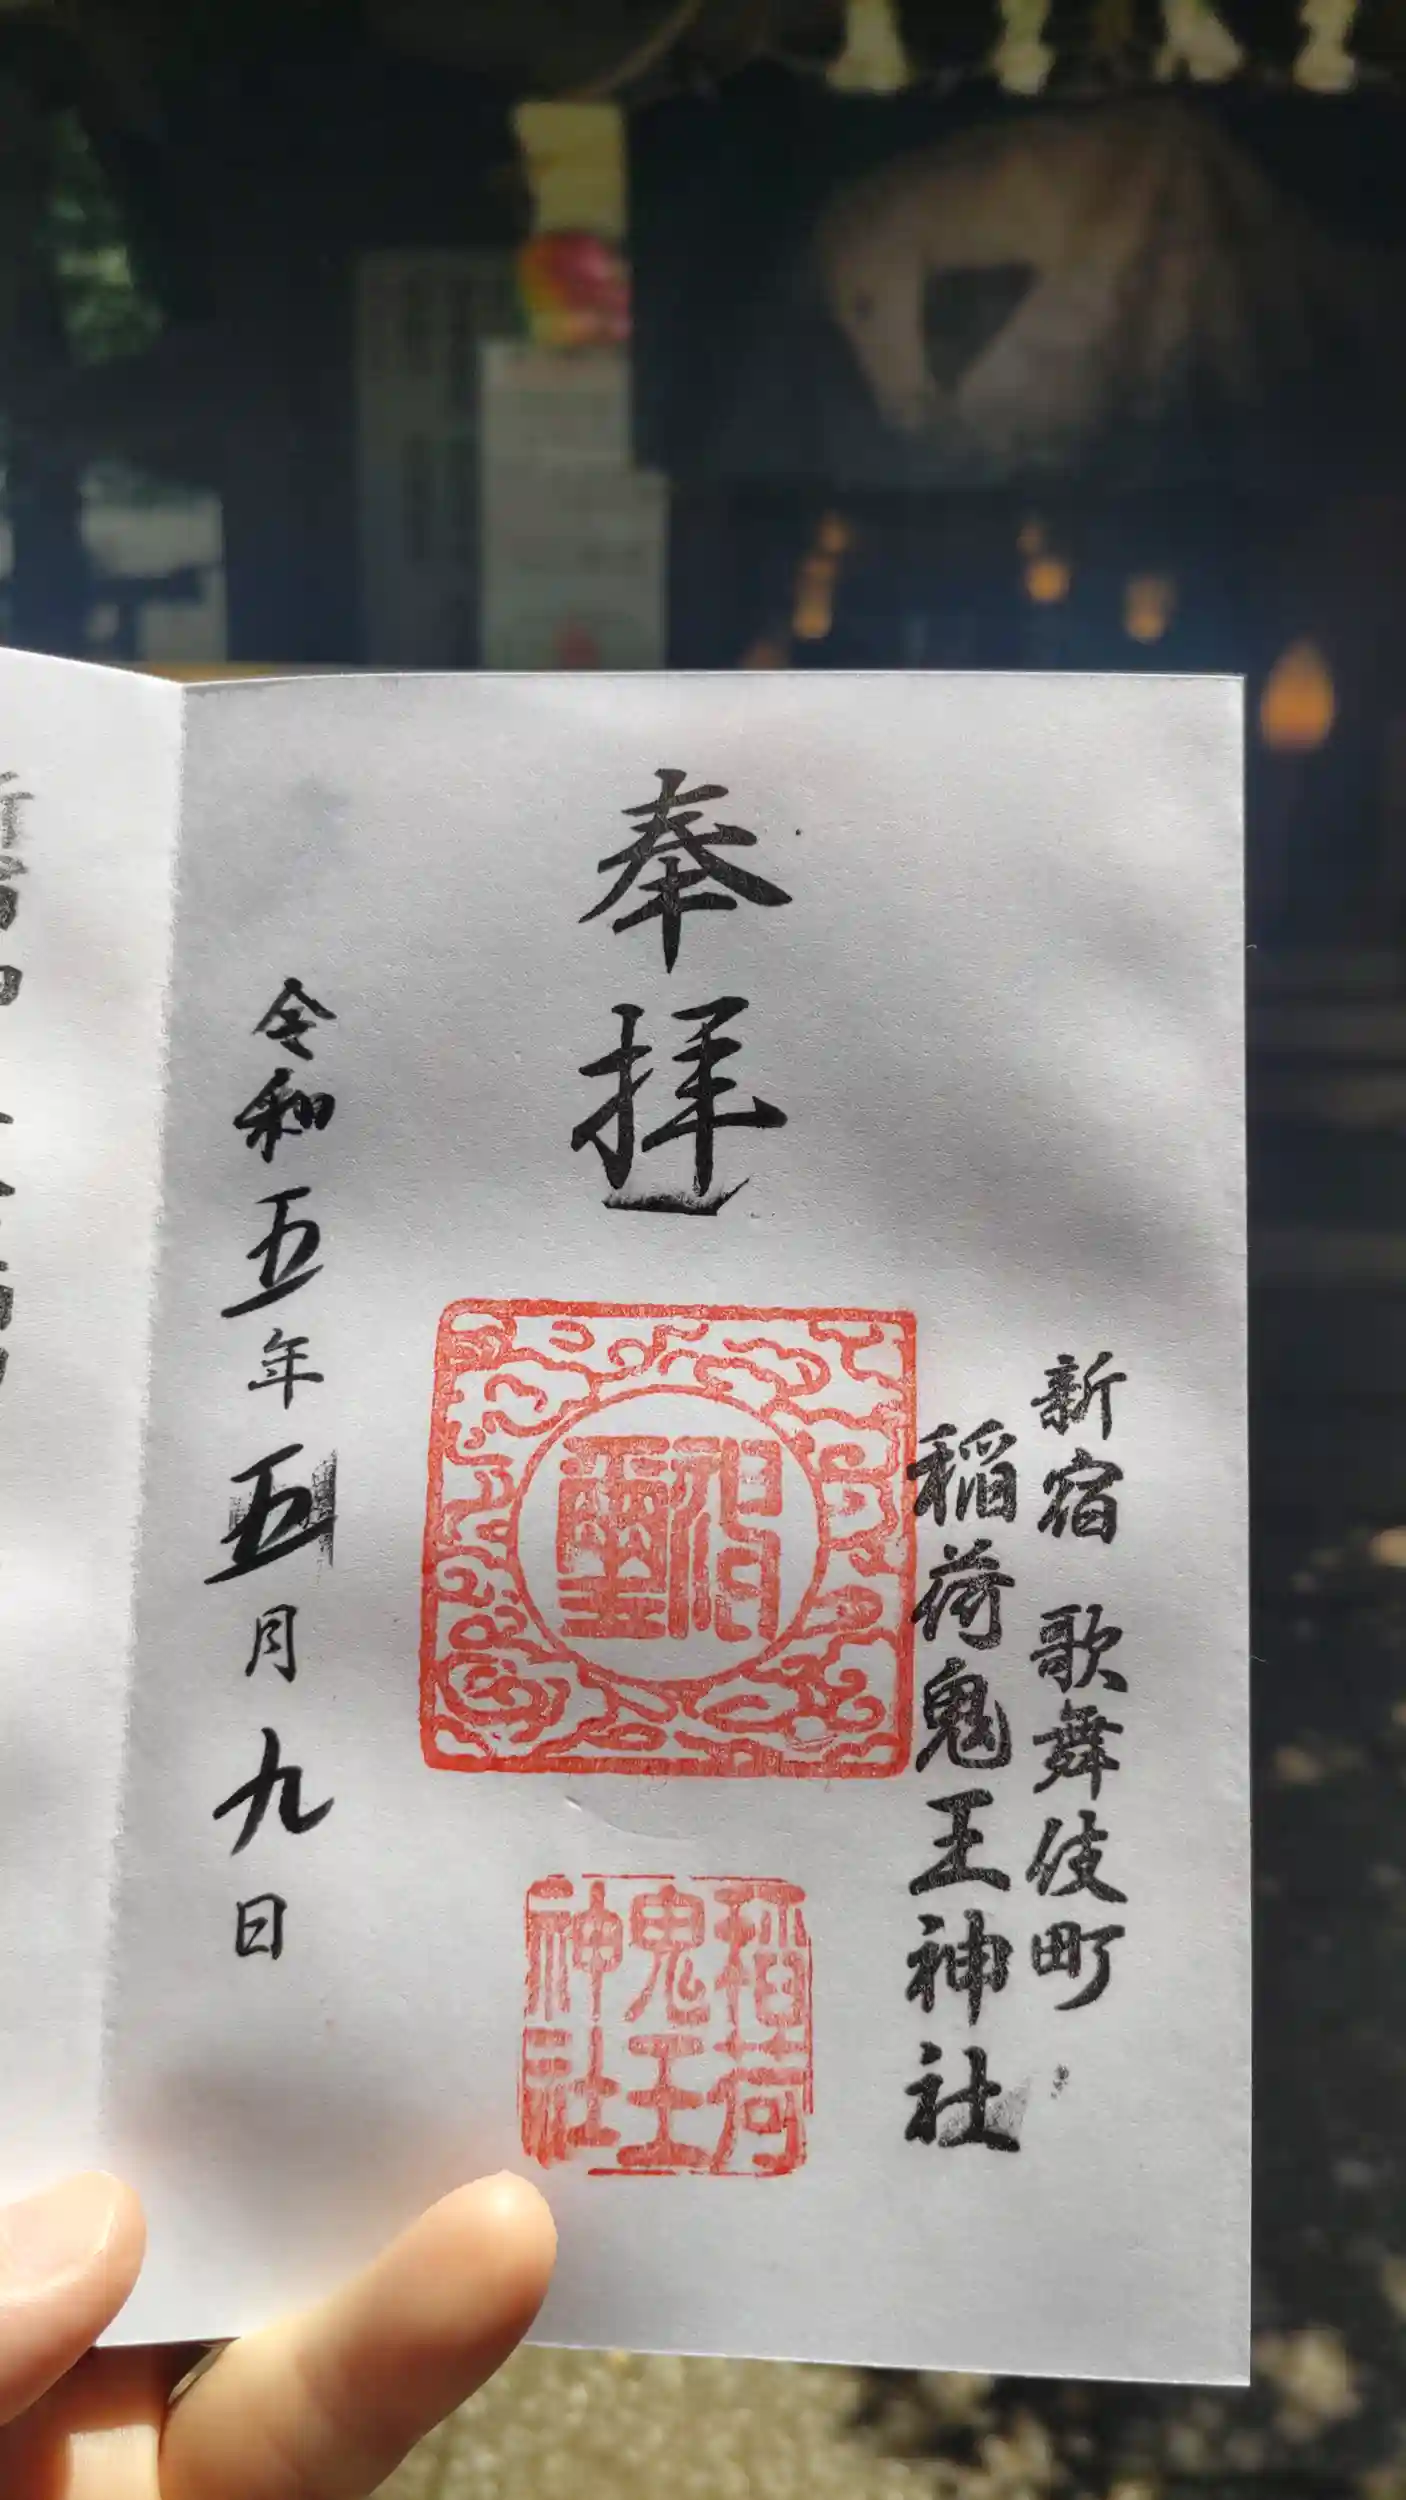 奉拝
新宿 歌舞伎町
稲荷鬼王神社
稲荷
鬼王
神社
令和五年五月九日